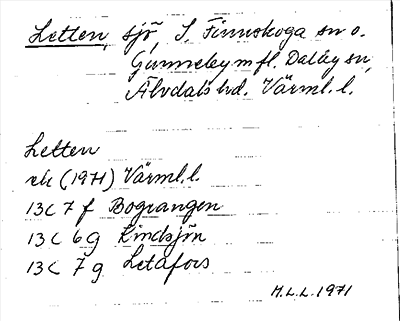 Letten, sjö, S. Finnskoga sn o.
Gunneby m fl. Dalby sn,
Älvdals hd. Värml. l.
Letten
rek (1971) Värml. l.
13C 7 f Bograngen
13C 6 g Kindsjön
13C 7 g Letafors
M.L.L. 1971